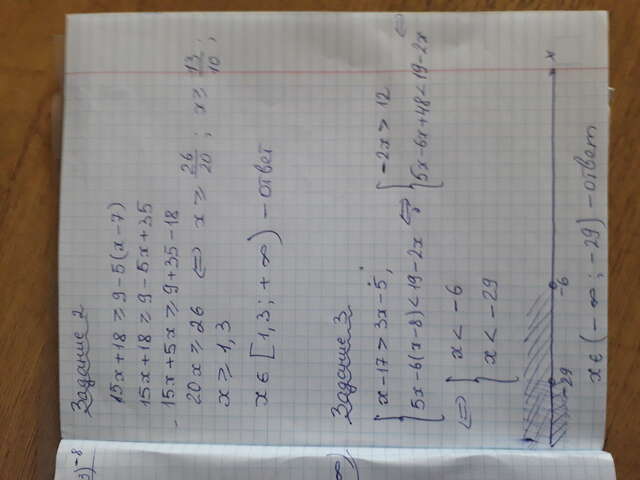 3)⁻⁸
Задание 2
15x+18 ≥ 9-5(x-7)
15x+18 ≥ 9-5x+35
15x+5x ≥ 9+35-18
20x ≥ 26 ⟺ x ≥ 26/20 ; x ≥ 13/10 ;
x ≥ 1,3
x ∈ [1,3; +∞) - ответ
∞),
Задание 3
{ x-17 > 3x-5, { -2x > 12
{ 5x-6(x-8) < 19-2x ⟺ { 5x-6x+48 < 19-2x ⟺
⟺ { x < -6
{ x < -29
-29 -6 x
x ∈ (-∞; -29) - ответ